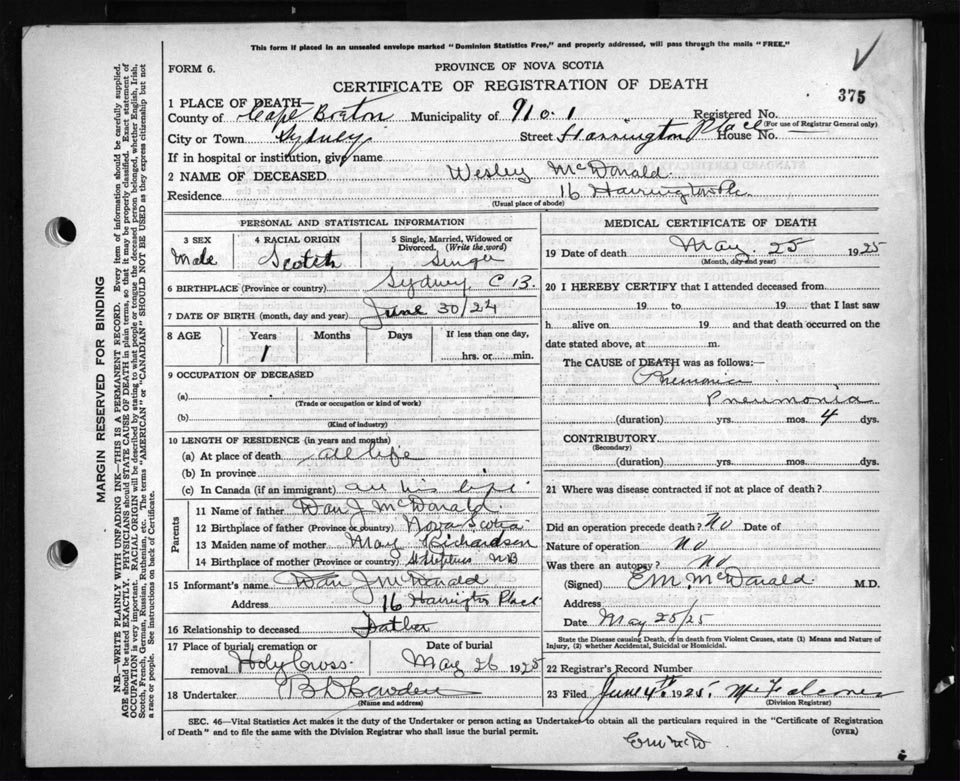 This form if placed in an unsealed envelope marked "Dominion Statistics Free," and properly addressed, will pass through the mails "FREE."
FORM 6.
PROVINCE OF NOVA SCOTIA
CERTIFICATE OF REGISTRATION OF DEATH
375
1 PLACE OF DEATH—
County of Cape Breton Municipality of No. 1 Registered No.
(For use of Registrar General only)
City or Town Sydney Street Harrington Place House No. —
If in hospital or institution, give name
2 NAME OF DECEASED Wesley McDonald
Residence 16 Harrington Pl.
(Usual place of abode)
PERSONAL AND STATISTICAL INFORMATION
3 SEX 4 RACIAL ORIGIN 5 Single, Married, Widowed or Divorced (Write the word)
Male Scotch Single
6 BIRTHPLACE (Province or country) Sydney C B.
7 DATE OF BIRTH (month, day and year) June 30/24
8 AGE Years Months Days If less than one day,
1 hrs. or min.
9 OCCUPATION OF DECEASED
(a)
(Trade or occupation or kind of work)
(b)
(Kind of industry)
10 LENGTH OF RESIDENCE (in years and months)
(a) At place of death all life
(b) In province
(c) In Canada (if an immigrant) all his life
Parents
11 Name of father Dan J McDonald
12 Birthplace of father (Province or country) Nova Scotia
13 Maiden name of mother May Richardson
14 Birthplace of mother (Province or country) St Stephens NB
15 Informant's name Dan J McDonald
Address 16 Harrington Place
16 Relationship to deceased Father
17 Place of burial, cremation or removal Holy Cross Date of burial May 26 1925
18 Undertaker
(Name and address)
MEDICAL CERTIFICATE OF DEATH
19 Date of death May 25 1925
(Month, day and year)
20 I HEREBY CERTIFY that I attended deceased from
19 to 19 that I last saw
h alive on 19 and that death occurred on the
date stated above, at m.
The CAUSE of DEATH was as follows:—
Pnemonia
Pneumonia
(duration) yrs. mos. 4 dys.
CONTRIBUTORY
(Secondary)
(duration) yrs. mos. dys.
21 Where was disease contracted if not at place of death?
Did an operation precede death? No Date of
Nature of operation No
Was there an autopsy? No
(Signed) E M. McDonald M.D.
Address
Date May 25/25
State the Disease causing Death, or in death from Violent Causes, state (1) Means and Nature of Injury, (2) whether Accidental, Suicidal or Homicidal.
22 Registrar's Record Number
23 Filed June 4th 1925.
(Division Registrar)
SEC. 46—Vital Statistics Act makes it the duty of the Undertaker or person acting as Undertaker to obtain all the particulars required in the "Certificate of Registration
of Death" and to file the same with the Division Registrar who shall issue the burial permit.
(OVER)
EMMcD
MARGIN RESERVED FOR BINDING
N.B.—WRITE PLAINLY, WITH UNFADING INK—THIS IS A PERMANENT RECORD. Every item of information should be carefully supplied.
AGE should be stated EXACTLY. PHYSICIANS should STATE CAUSE OF DEATH in plain terms, so that it may be properly classified. Exact statement of
OCCUPATION is very important. RACIAL ORIGIN will be described by stating to what people or tongue the deceased person belonged, whether English, Irish,
Scotch, French, German, Russian, Ruthenian, etc. The terms "AMERICAN" or "CANADIAN" SHOULD NOT BE USED as they express citizenship but not
a race or people. See instructions on back of Certificate.